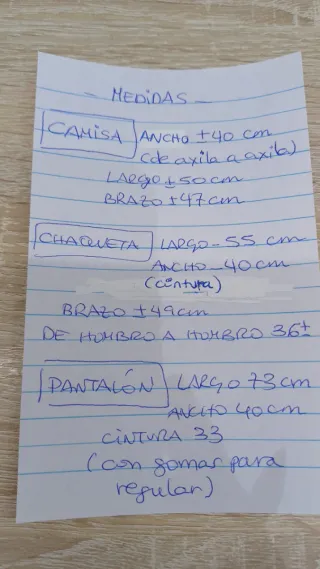 - MEDIDAS -
CAMISA ANCHO ±40 cm
(de axila a axila)
LARGO ±50cm
BRAZO ±47cm
CHAQUETA LARGO - 55 cm
ANCHO - 40cm
(cintura)
BRAZO ±49cm
DE HOMBRO A HOMBRO 36±
PANTALÓN LARGO 73cm
ANCHO 40cm
CINTURA 33
(con gomas para
regular)